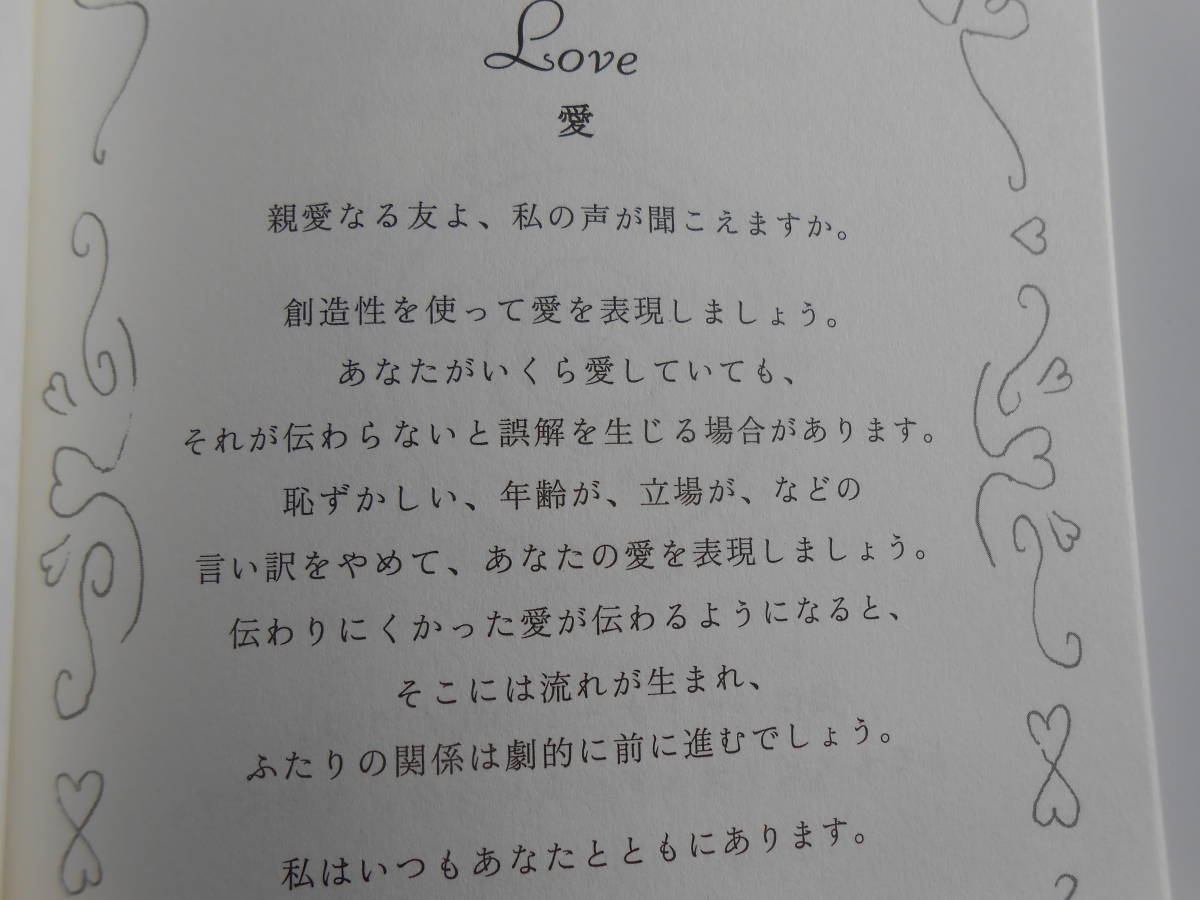 Love
愛
親愛なる友よ、私の声が聞こえますか。
創造性を使って愛を表現しましょう。
あなたがいくら愛していても、
それが伝わらないと誤解を生じる場合があります。
恥ずかしい、年齢が、立場が、などの
言い訳をやめて、あなたの愛を表現しましょう。
伝わりにくかった愛が伝わるようになると、
そこには流れが生まれ、
ふたりの関係は劇的に前に進むでしょう。
私はいつもあなたとともにあります。